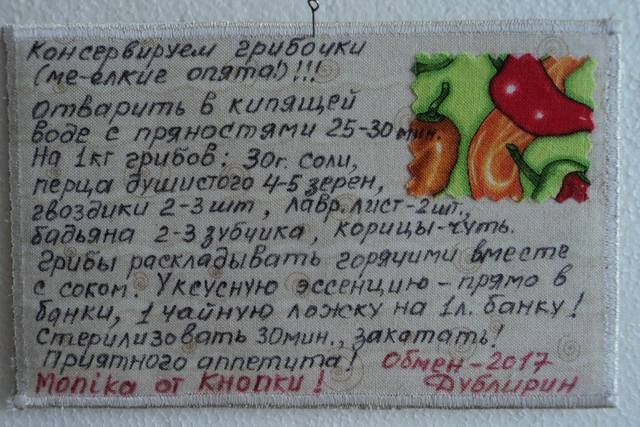 Консервируем грибочки
(ме-елкие опята!)!!!
Отварить в кипящей
воде с пряностями 25-30 мин.
На 1кг грибов: 30г. соли,
перца душистого 4-5 зерен,
гвоздики 2-3 шт, лавр. лист-2шт.,
бадьяна 2-3 зубчика, корицы-чуть.
Грибы раскладывать горячими вместе
с соком. Уксусную эссенцию - прямо в
банки, 1 чайную ложку на 1л. банку!
Стерилизовать 30мин., закатать!
Приятного аппетита! Обмен-2017
Monika от Кнопки! Дублирин